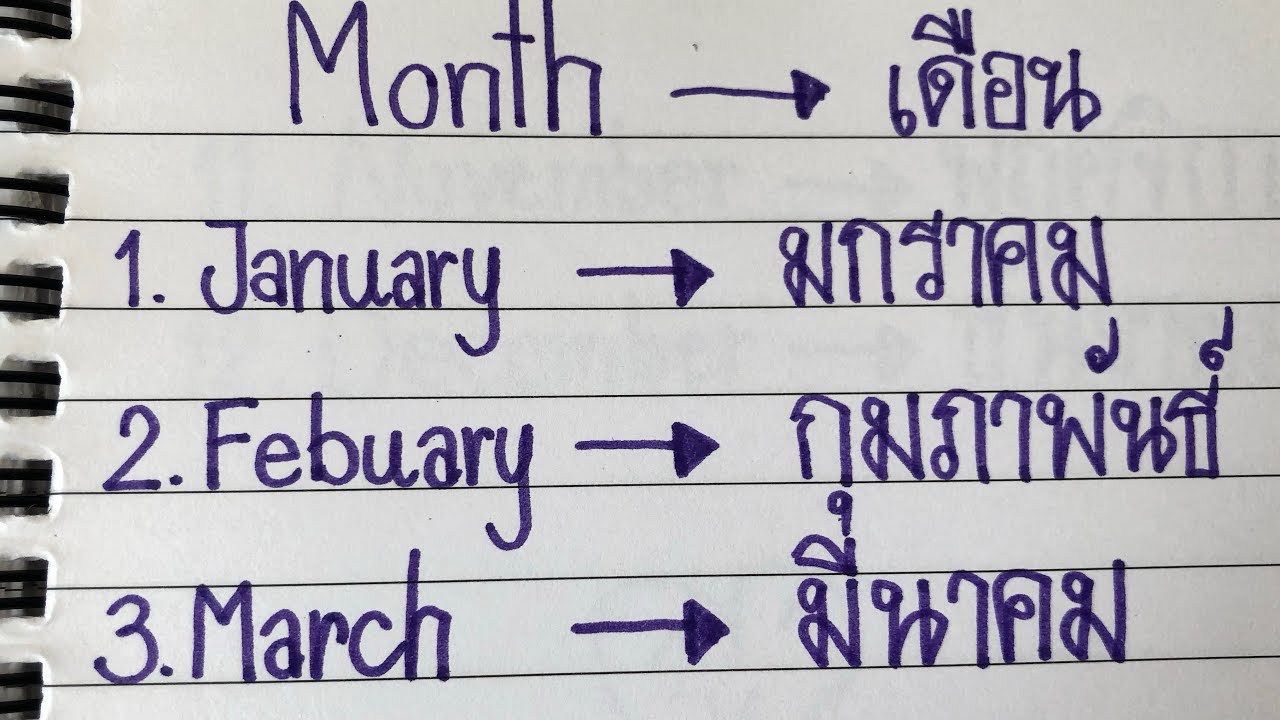 Month → เดือน
1. January → มกราคม
2. Febuary → กุมภาพันธ์
3. March → มีนาคม